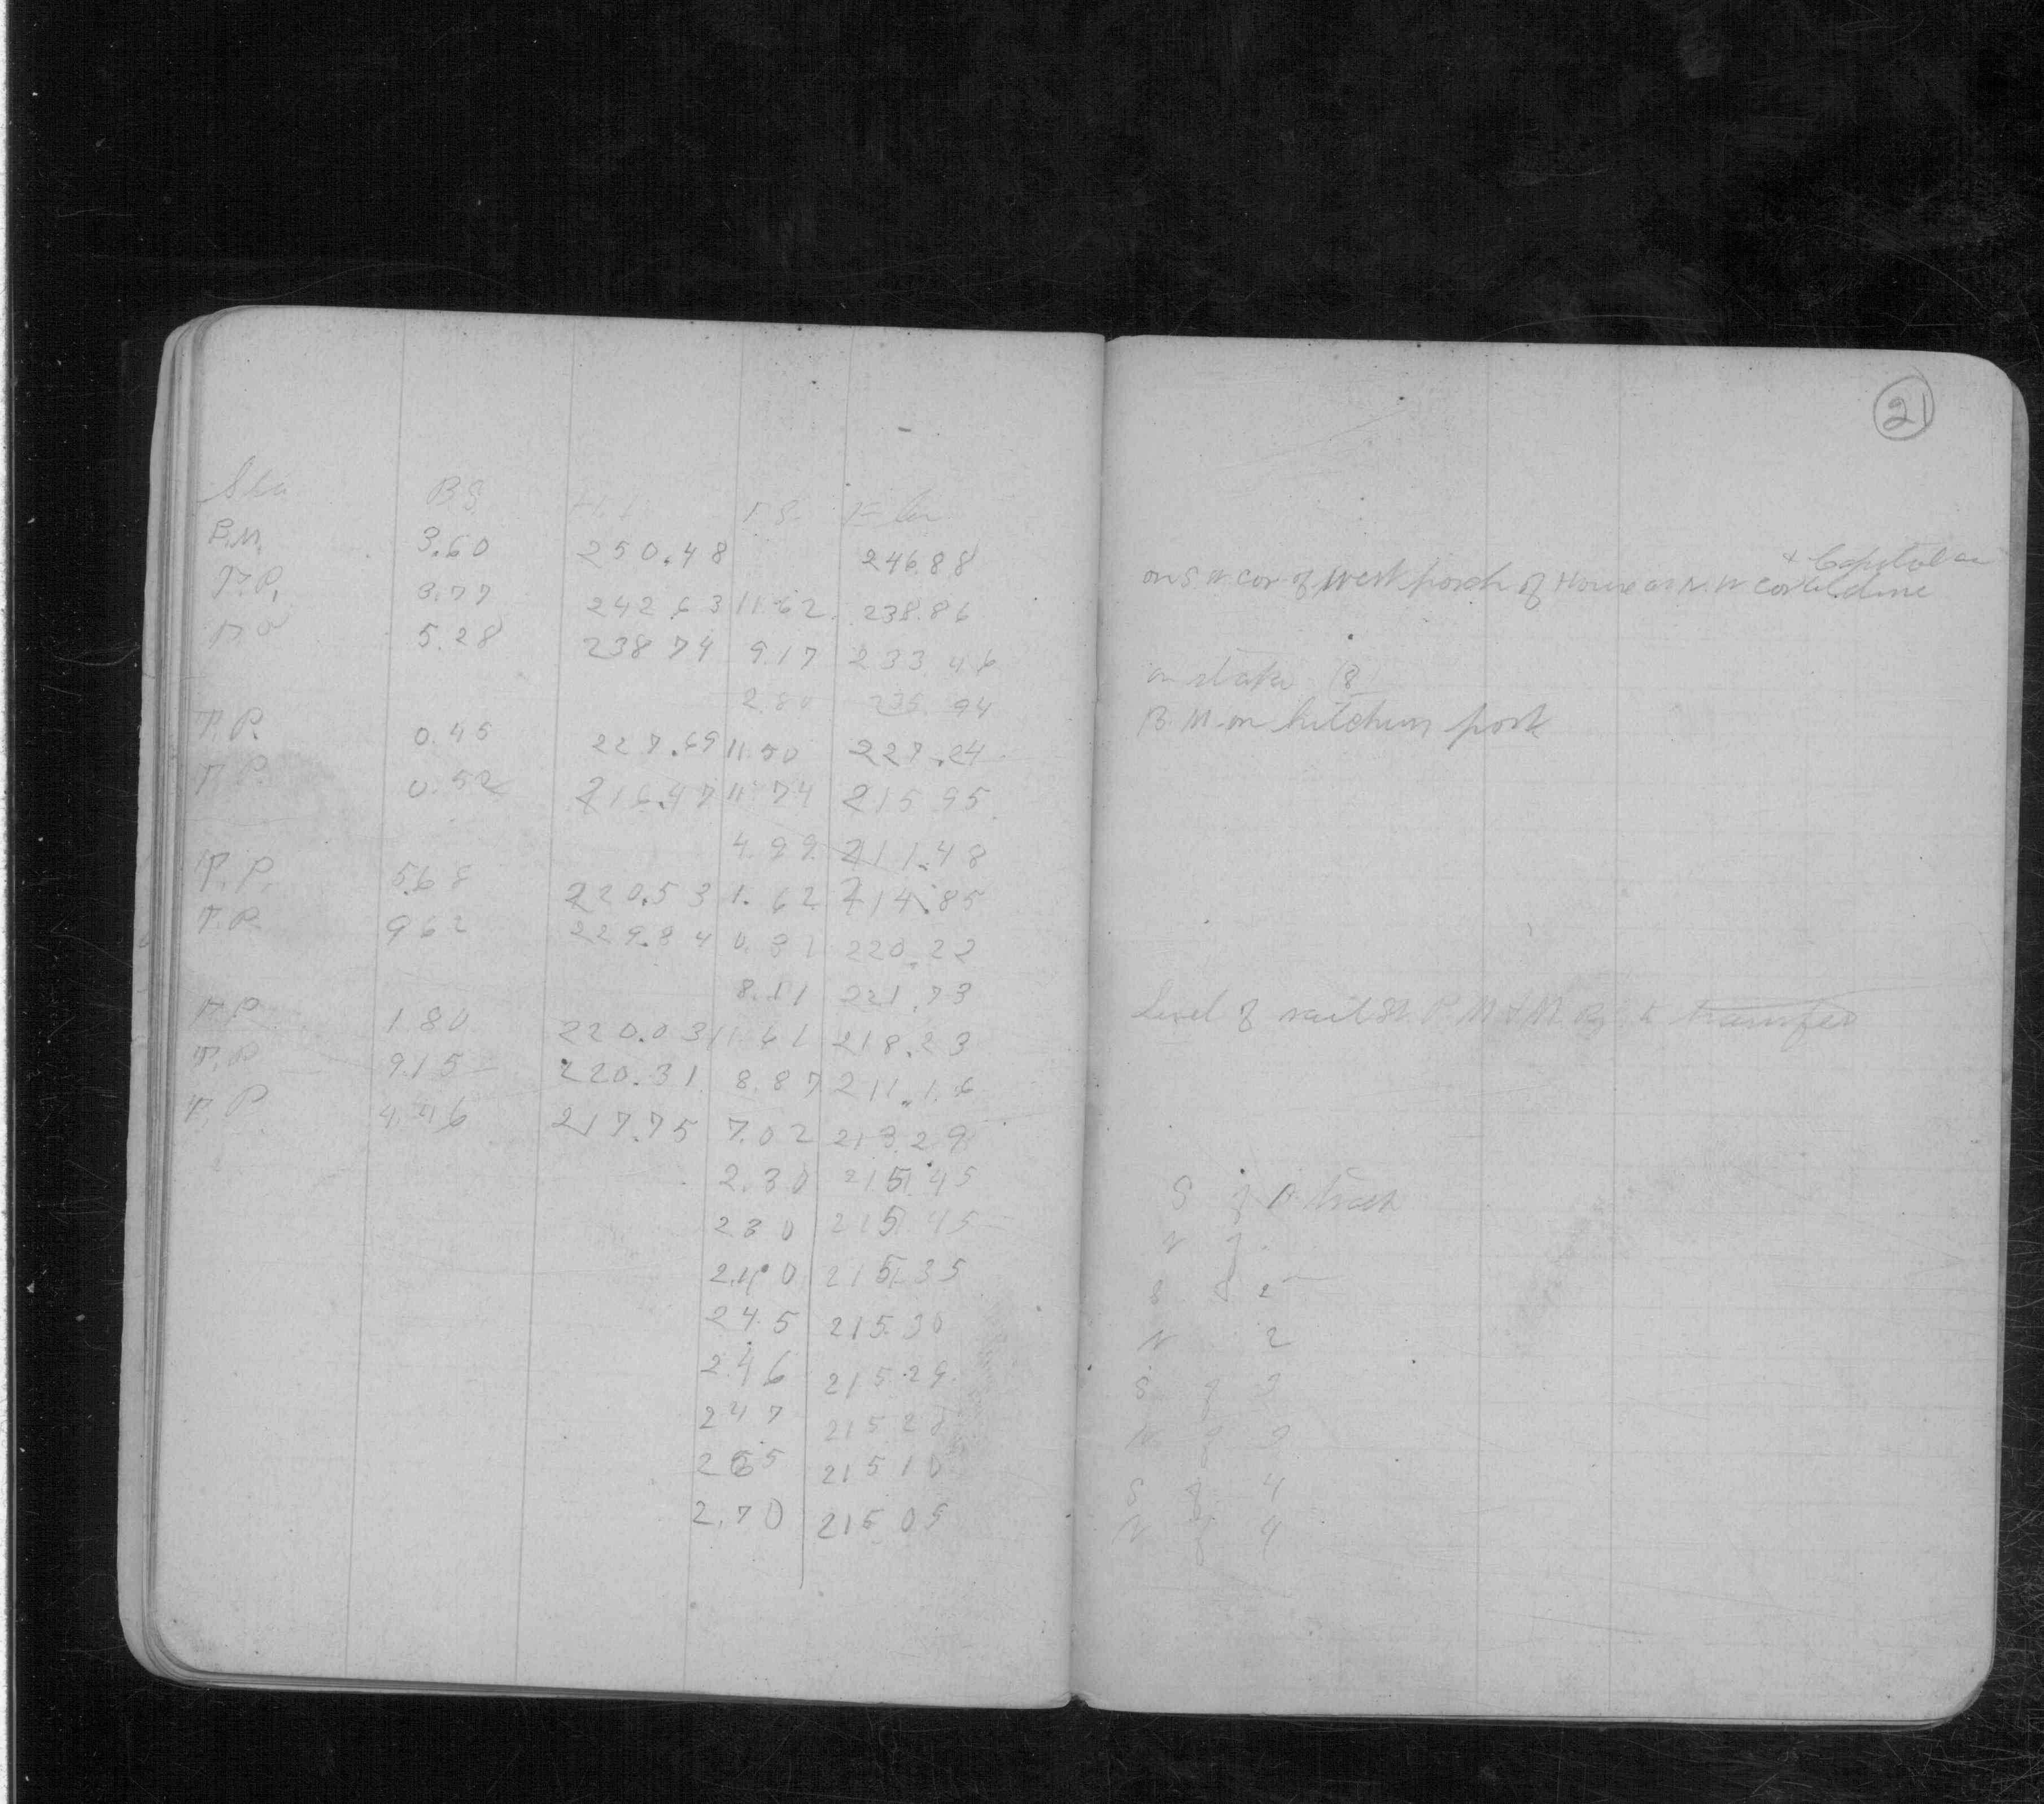 21
Sta BS H.I F.S. Elev
B.M. 3.60 250.48 246.88
T.P. 3.77 242.63 11.62 238.86
T.P. 5.28 238 74 9.17 233 46
2.80 235.94
T.P. 0.45 227.69 11.50 227.24
T.P. 0.52 216.47 11 74 215 95
4.99 211.48
T.P. 5.68 220.53 1.62 214.85
T.P. 9 62 229.84 0.31 220.22
8.11 221.73
T.P. 1 80 220.03 11 61 218.23
T.P. 9.15 220.31 8.87 211.16
T.P. 4.46 217.75 7.02 213.29
2.30 215.45
2 30 215 45
2.40 215.35
2 4.5 215.30
2.46 215.29
2 47 215 28
2 65 215 10
2.70 215 05
& Capitol av
on S.W cor of West porch of House at N.W cor
on stake 18
B.M. on kitchen
Level of rail St. P. M & M. Ry. transfer
S of A track
N
S 2
N 2
S of 3
N of 3
S of 4
N of 4